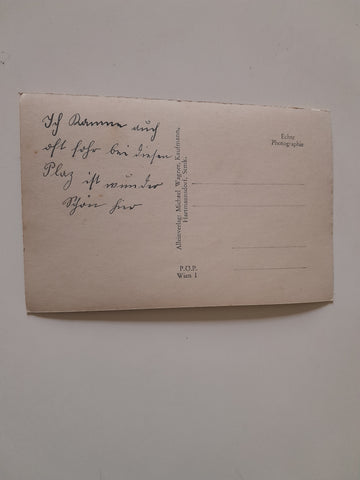 Ich kamme auch
oft fohr bei diesen
Plaz ist wunder
Schön hier
Alleinverlag: Michael Wagner, Kaufmann,
Hartmannsdorf, Stmk.
P.O.P.
Wien I
Echte
Photographie